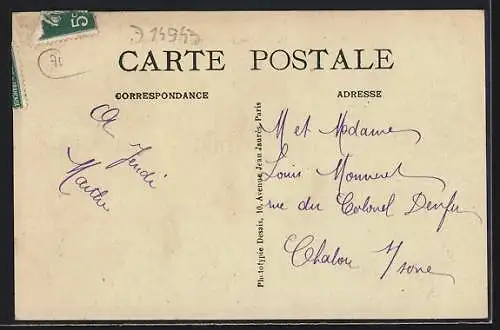 5c
D 14943
71
CARTE POSTALE
CORRESPONDANCE
ADRESSE
A Jeudi
Marthe
Phototypie Desaix, 10, Avenue Jean Jaurès, Paris
M et Madame
Louis Monneret
rue du Colonel Denfer
Chalon s/ Saone